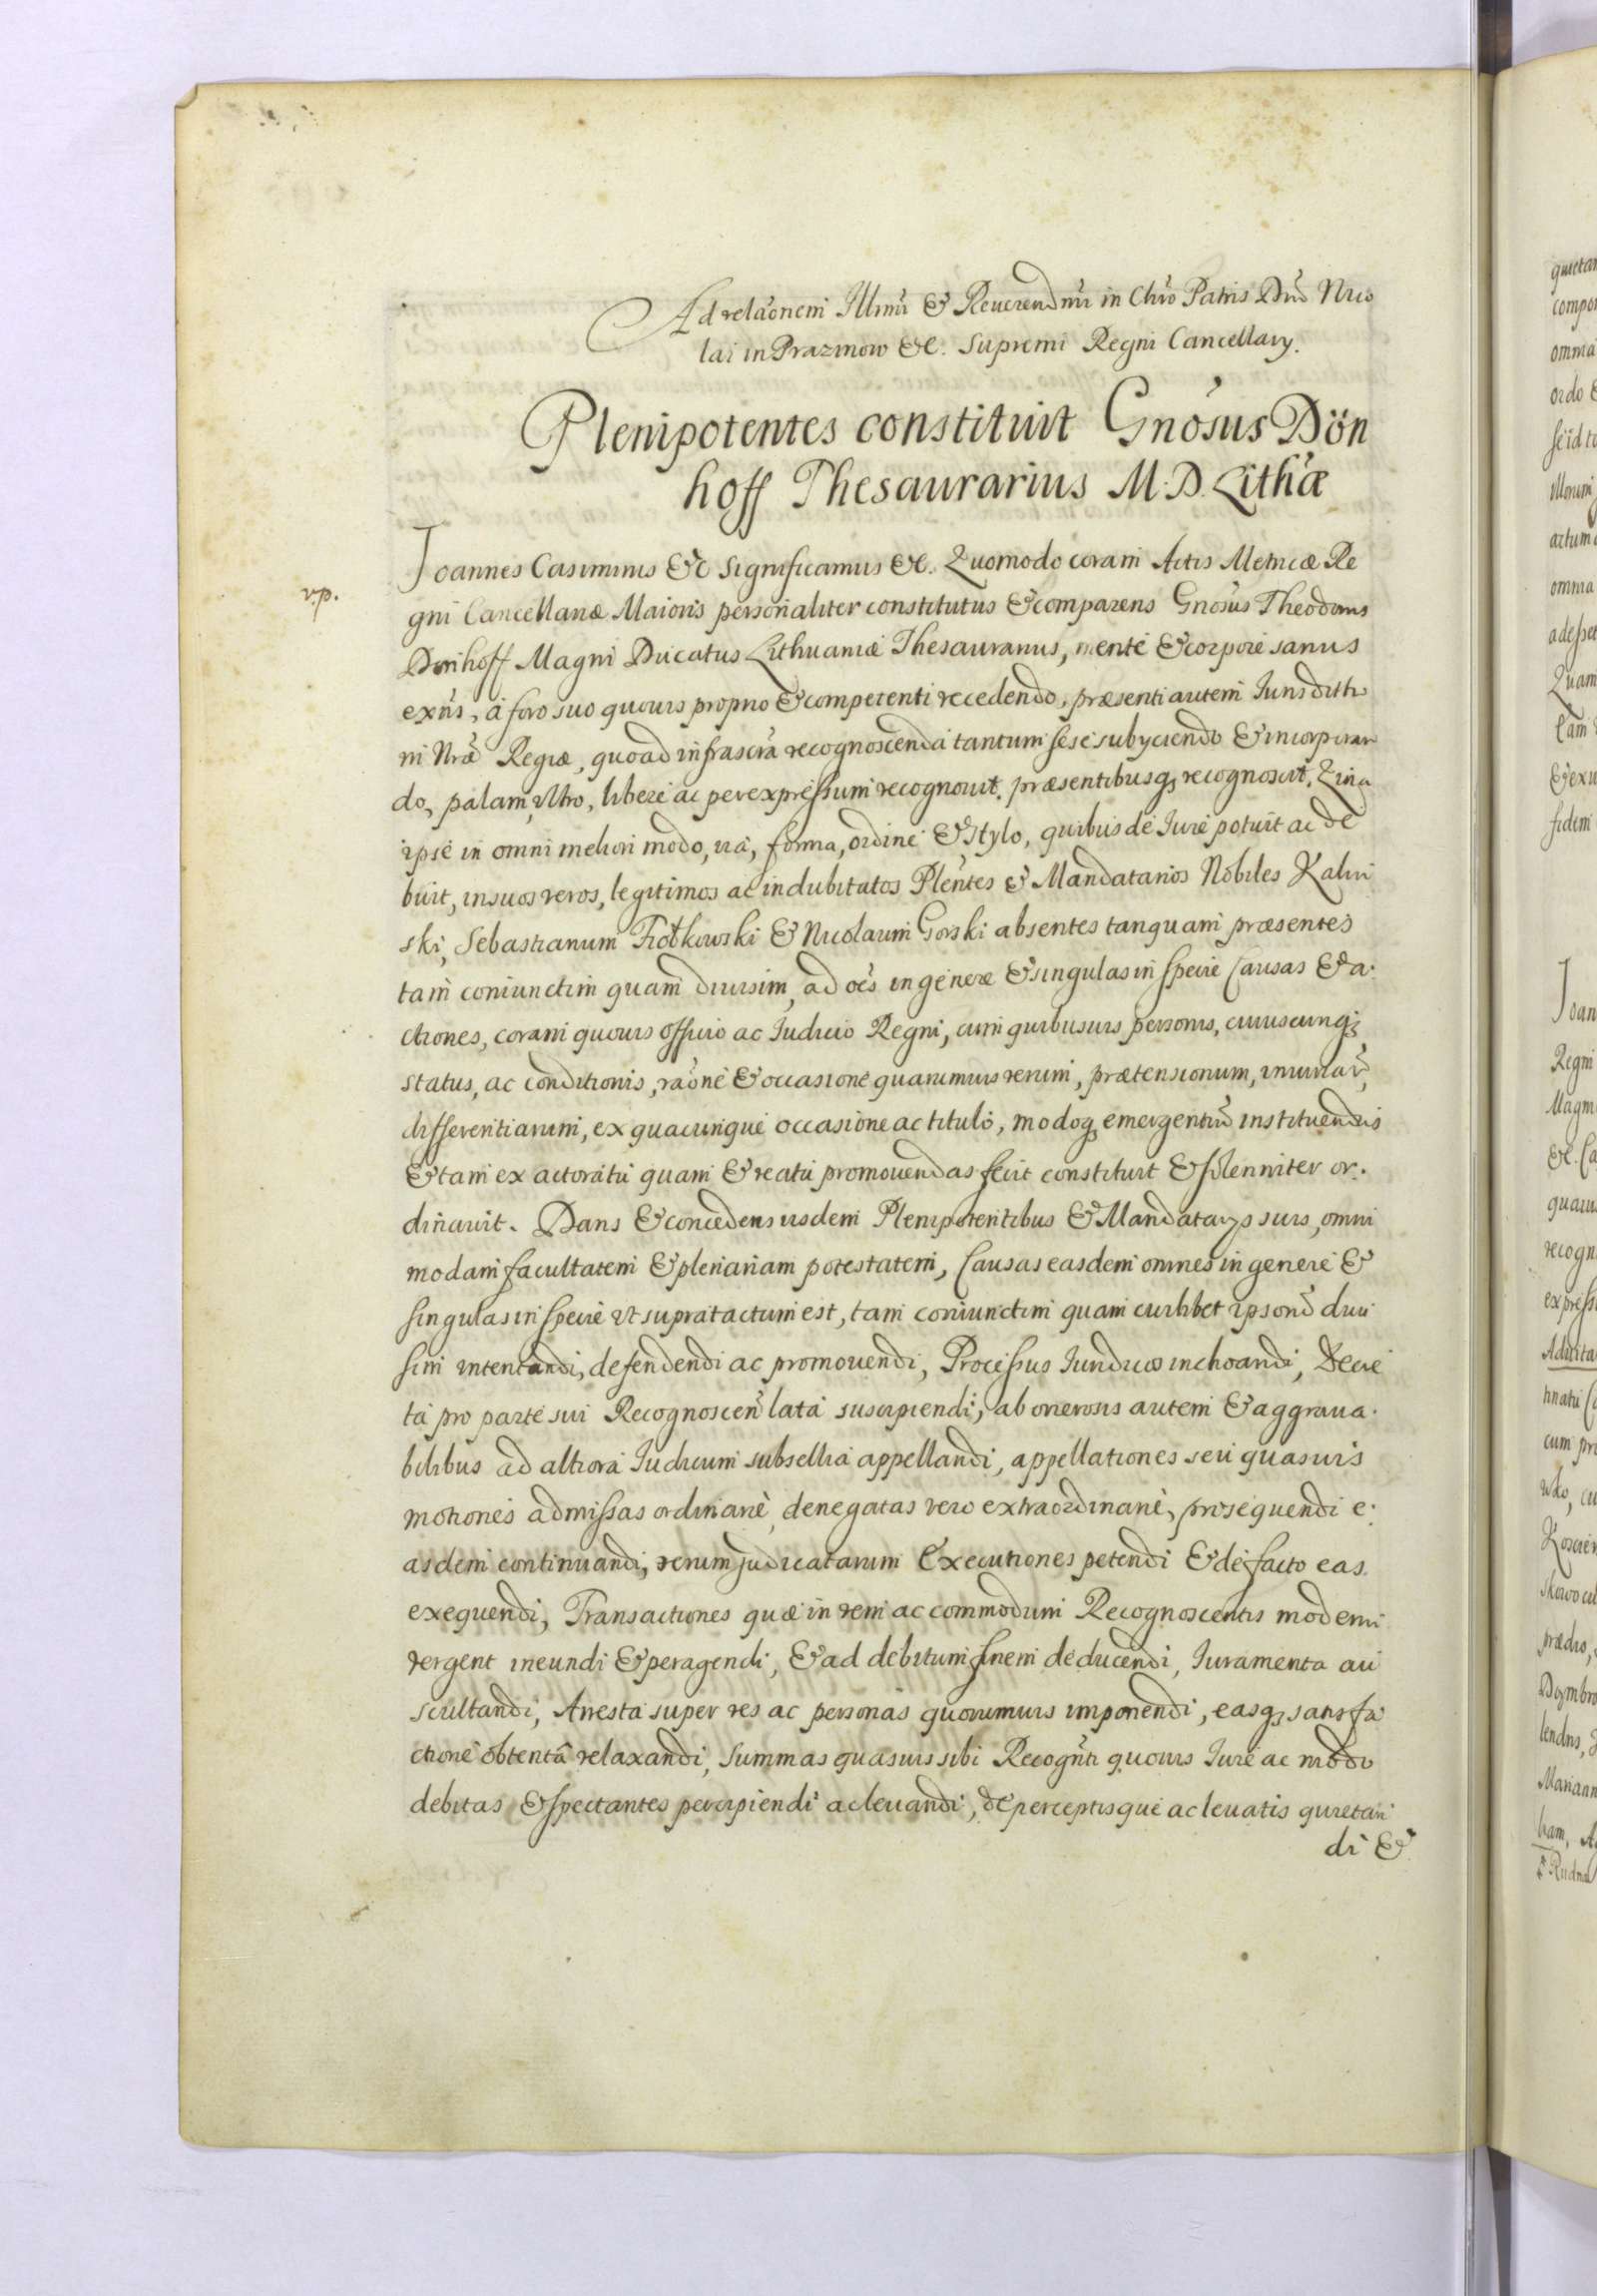 Ad relaonem Illmi & Reuerendmi in Chro Patris Dni Nico
lai in Prazmow &c. Supremi Regni Cancellary.
Plenipotentes constituit Gnosus Dön
hoff Thesaurarius M. D. Lithæ
Joannes Casimirus &c Significamus &c. Quomodo coram Actis Metricæ Re
v.p.
gni Cancellariæ Maioris personaliter constitutus & comparens Gnosus Theodorus
Dönhoff Magni Ducatus Lithuaniæ Thesaurarius, mente & corpore sanus
exñs, à foro suo quouis proprio & competenti recedendo, præsenti autem Jurisdictio
ni Nræ Regiæ, quoad infrascra recognoscenda tantum sese subyciendo & incorporan
do, palam, ultro, libere ac per expressum recognouit, præsentibusq recognoscit. Quia
ipse in omni meliori modo, via, forma, ordine & stylo, quibus de Jure potuit ac de
buit, in suos veros, legitimos ac indubitatos Plentes & Mandatarios Nobiles Kalin
ski, Sebastianum Fiołkowski & Nicolaum Gorski absentes tanquam præsentes
tam coniunctim quam diuisim, ad oes in genere & singulas in specie Causas & a
ctiones, coram quouis officio ac Judicio Regni, cum quibusuis personis, cuiuscunq
status, ac conditionis, raone & occasione quarumuis rerum, prætensionum, iniuriar,
differentiarum, ex quacunque occasione ac titulo, modoq emergentiu instituendas
& tam ex actoratu quam & reatu promouendas fecit constituit & solenniter or.
dinauit. Dans & concedens iisdem Plenipotentibus & Mandatarys suis, omni
modam facultatem & plenariam potestatem, Causas easdem omnes in genere &
singulas in specie ut supra tactum est, tam coniunctim quam cuilibet ipsoru diui
sim intentandi, defendendi ac promouendi, Processus Juridicos inchoandi, Decre
ta pro parte sui Recognoscen lata suscipiendi, ab onerosis autem & aggraua.
bilibus ad altiora Judicium subsellia appellandi, appellationes seu quasuis
motiones admissas ordinariè, denegatas vero extraordinariè, prosequendi e.
asdem continuandi, rerum judicatarum Executiones petendi & de facto eas
exequendi, Transactiones quæ in rem ac commodum Recognoscentis moderni
vergent ineundi & peragendi, & ad debitum finem deducendi, Juramenta au
scultandi, Arresta super res ac personas quorumuis imponendi, easq satisfa
ctione obtentâ relaxandi, Summas quasuis sibi Recognti quouis Jure ac modo
debitas & spectantes percipiendi ac leuandi, de perceptisque ac leuatis quietan
di &